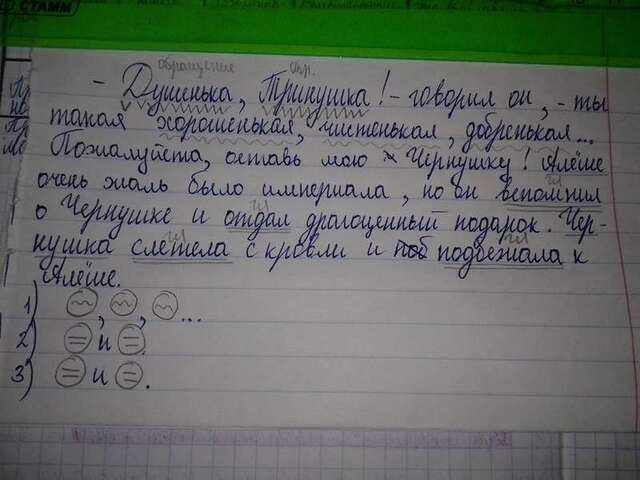 СТАММ
обращение обр.
- Душенька, Тринушка! - говорил он, - ты
такая хорошенькая, чистенькая, добренькая...
Пожалуйста, оставь мою Чернушку! Алёше
очень жаль было империала, но он вспомнил
гл
о Чернушке и отдал драгоценный подарок. Чер-
гл гл
нушка слетела с кровли и поб подбежала к
Алёше.
1) , , ...
2) и .
3) и .